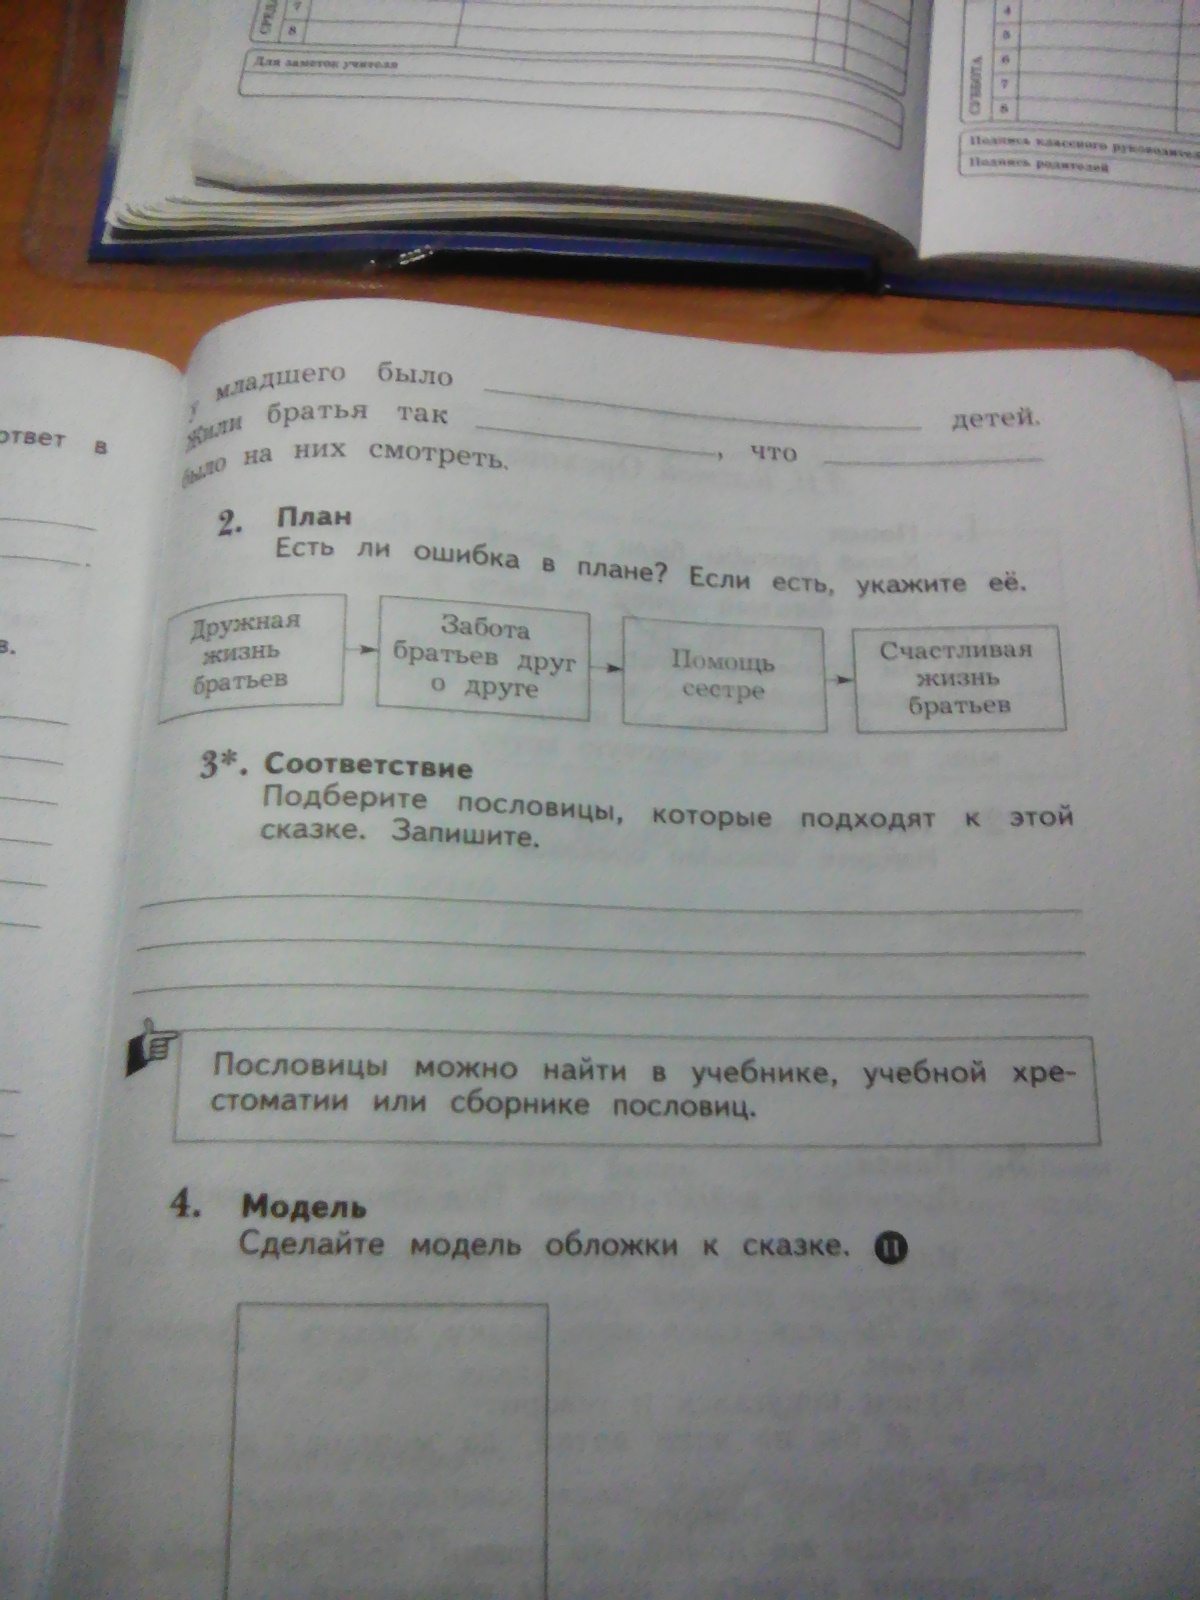 СРЕДА
7
8
Для заметок учителя
4
5
6
7
8
СУББОТА
Подпись классного
Подпись родителей
ответ в
в.
У младшего было детей.
Жили братья так , что
было на них смотреть.
2. План
Есть ли ошибка в плане? Если есть, укажите её.
Дружная
жизнь
братьев
Забота
братьев друг
о друге
Помощь
сестре
Счастливая
жизнь
братьев
3*. Соответствие
Подберите пословицы, которые подходят к этой
сказке. Запишите.
Пословицы можно найти в учебнике, учебной хре-
стоматии или сборнике пословиц.
4. Модель
Сделайте модель обложки к сказке.